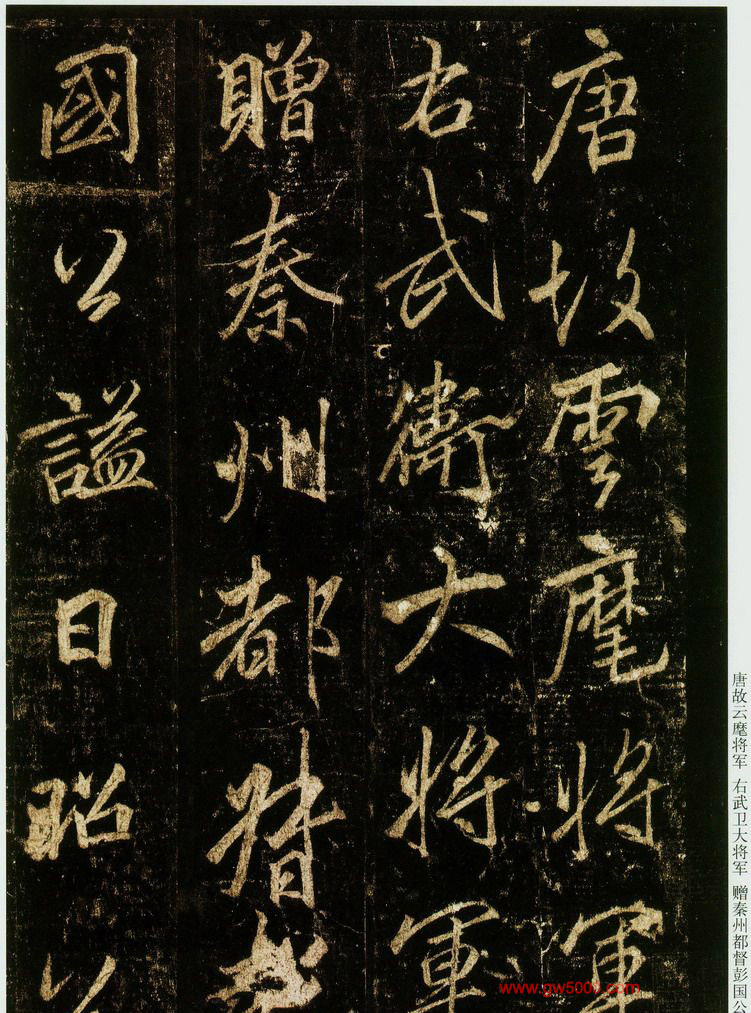 唐故雲麾將軍
右武衛大將軍
贈秦州都督彭
國公謚曰昭公
唐故云麾将军 右武卫大将军 赠秦州都督彭国公